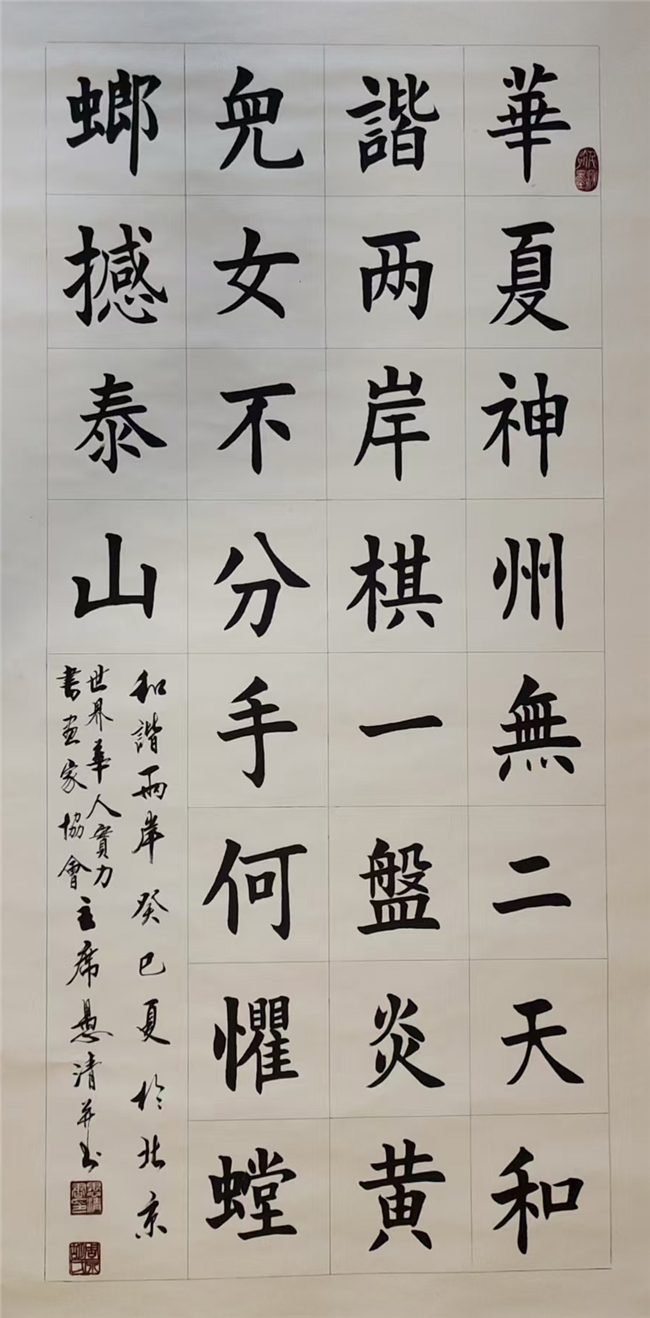 華夏神州無二天和
諧两岸棋一盤炎黄
兒女不分手何懼螳
螂撼泰山
和諧兩岸癸巳夏於北京
世界華人實力
書画家協會主席愚清并书